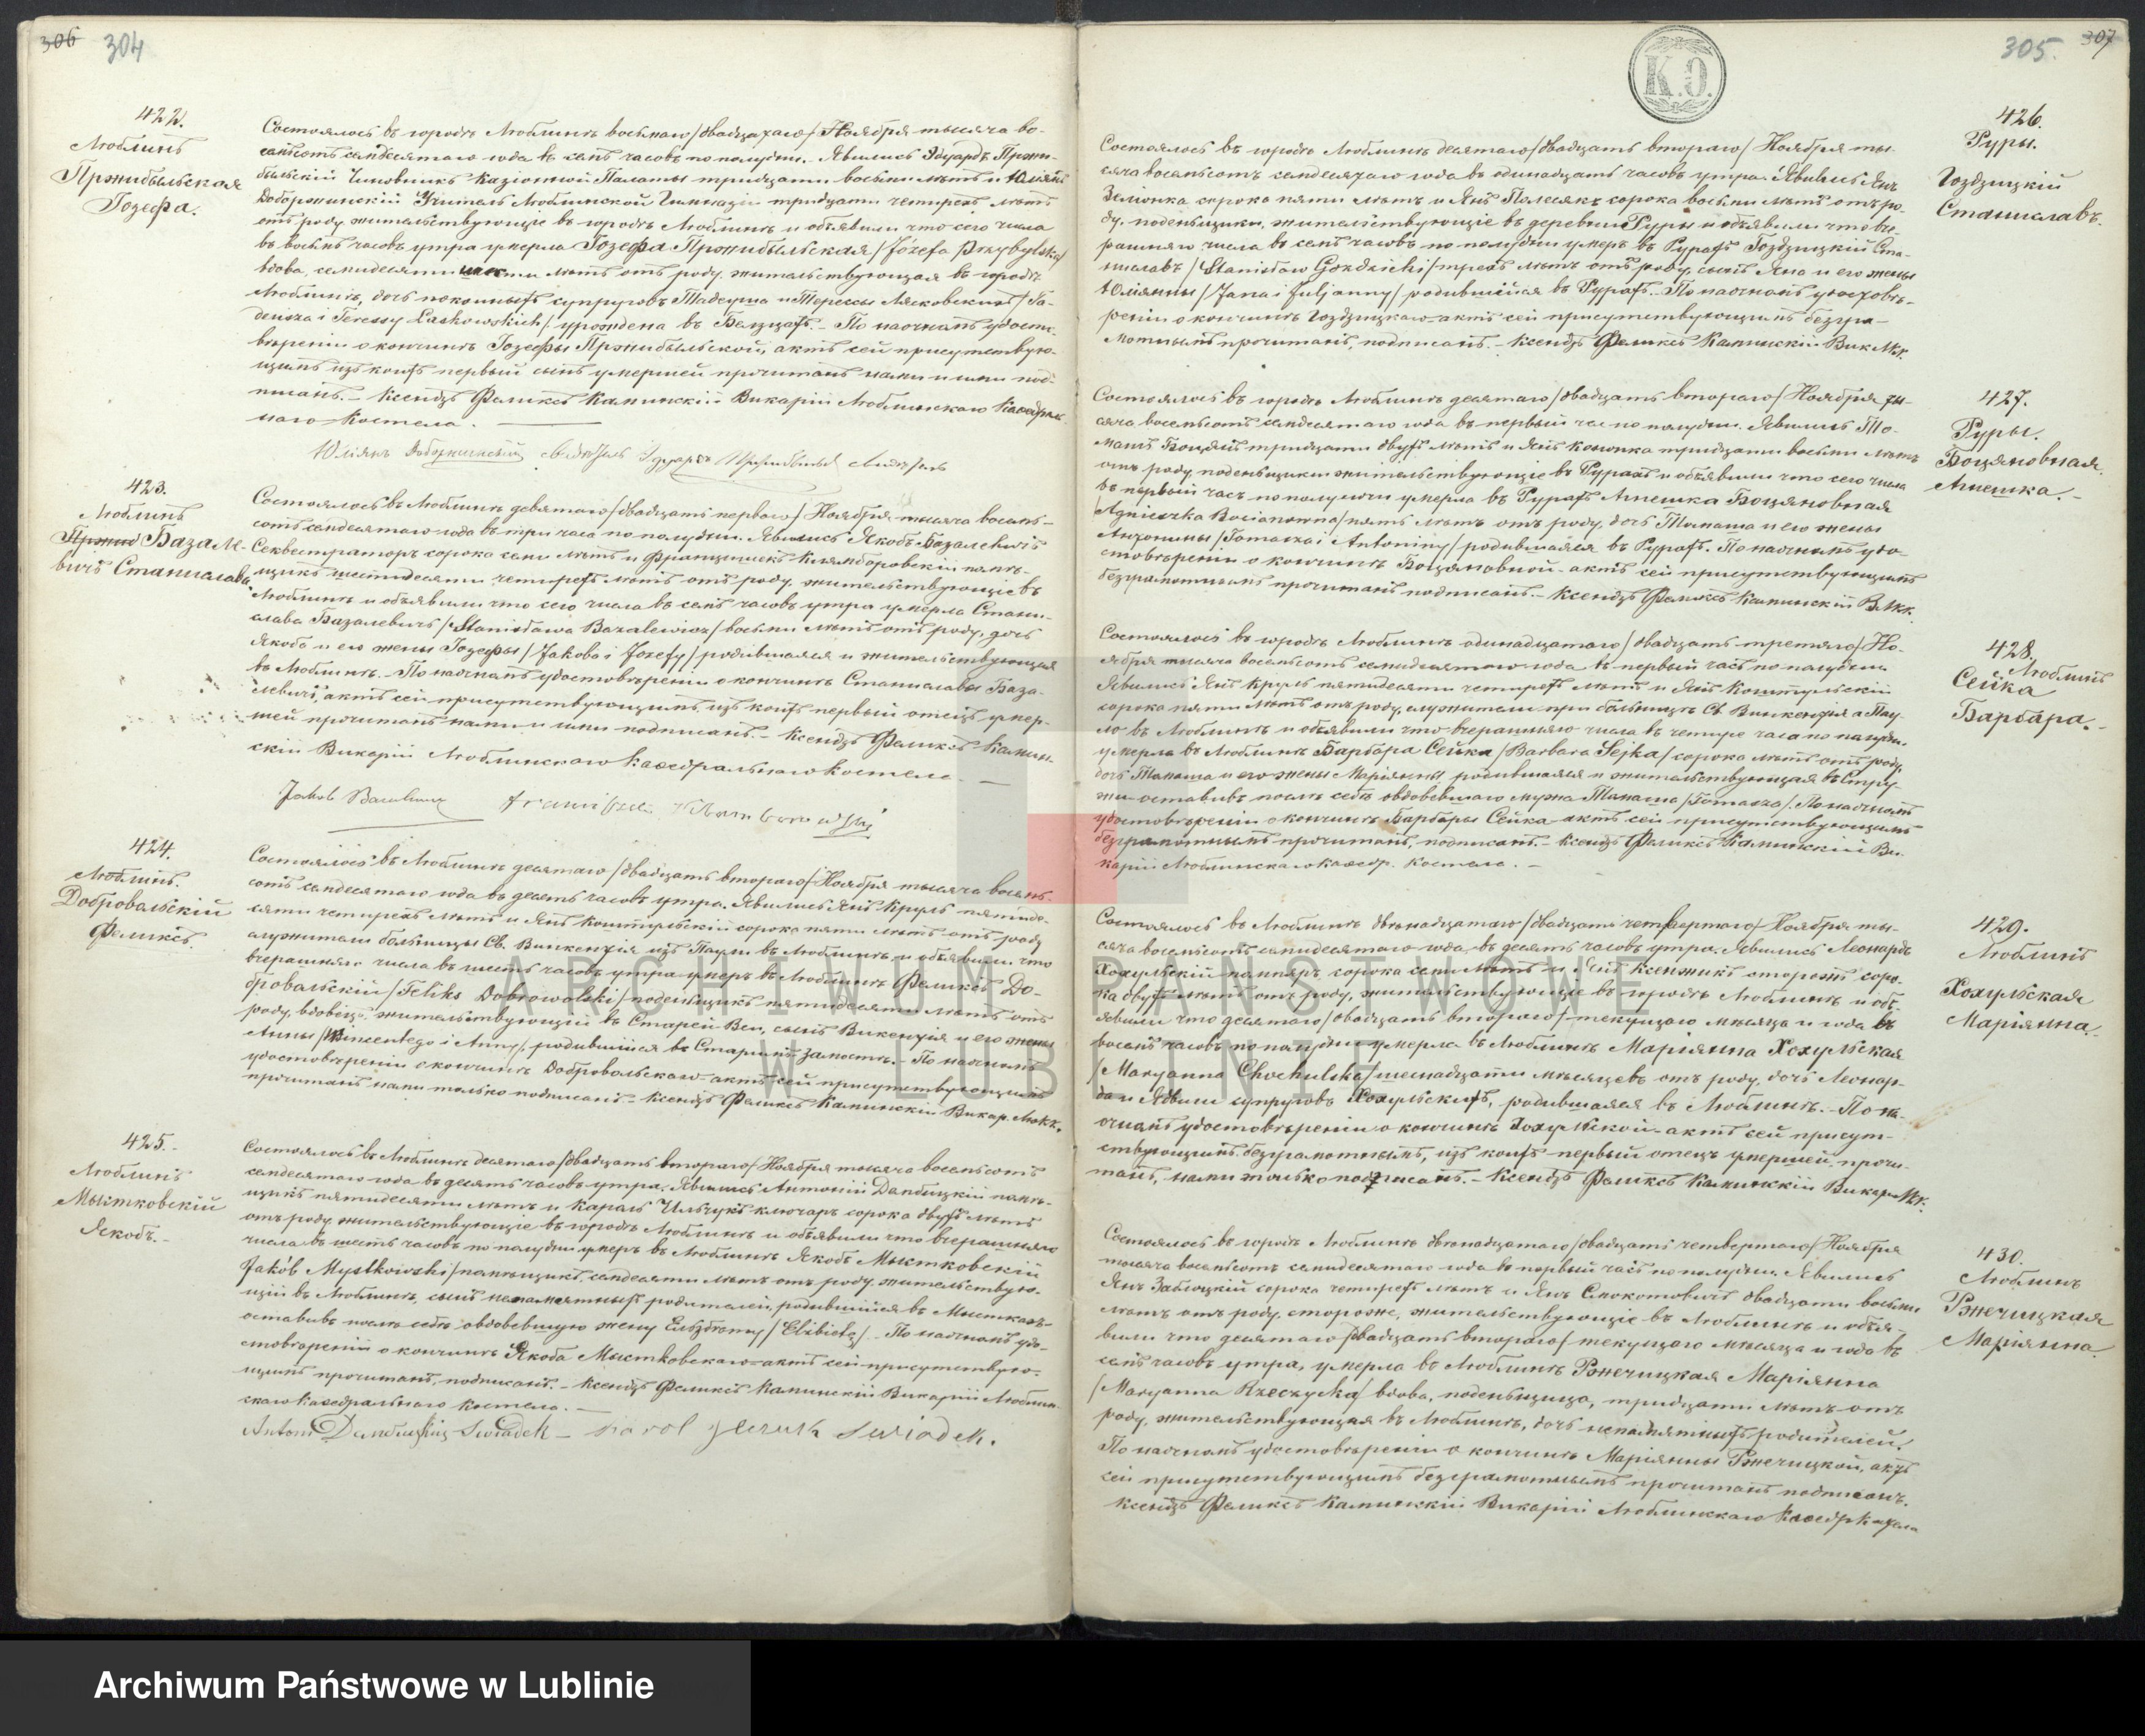 306 304
422.
Люблинъ
Пржибыльская
Іозефа.
Состоялось въ городѣ Люблинѣ восьмаго /двадцатаго/ Ноября тысяча во-
семьсотъ семдесятаго года въ семь часовъ по полудни. Явились Эдуардъ Пржи-
быльскій Чиновникъ Казіонной Палаты тридцати восьми лѣтъ и Юліянъ
Доборжинскій Учитель Люблинской Гимназіи тридцати четырехъ лѣтъ
отъ роду жительствующіе въ городѣ Люблинѣ и объявили что сего числа
въ восемь часовъ утра умерла Іозефа Пржибыльская /Józefa Przybylska/
вдова, семидесяти лѣтъ отъ роду, жительствующая въ городѣ
Люблинѣ, дочь покойныхъ супруговъ Тадеуша и Терессы Лясковскихъ /Ta-
deusza i Teressy Laskowskich/ урождена въ Белзцахъ. - По насчномъ удосто-
вѣреніи о кончинѣ Іозефы Пржибыльской, актъ сей присутствую-
щимъ изъ коихъ первый сынъ умершей прочитанъ нами и ими под-
писанъ. - Ксендзъ Феликсъ Каминскій Викарій Люблинскаго Каѳедраль-
наго Костела.
Юліянъ Доборжинскій Эдуардъ Пржибыльскій
423.
Люблинъ
Базале-
вичъ Станислава
Состоялось въ Люблинѣ девятаго /двадцать перваго/ Ноября тысяча восемь-
сотъ семдесятаго года въ три часа по полудни. Явились Якобъ Базалевичъ
Секвестраторъ сорока семи лѣтъ и Францишекъ Клямборовскій
шестидесяти четырехъ лѣтъ отъ роду, жительствующіе въ
Люблинѣ и объявили что сего числа въ семь часовъ утра умерла Стани-
слава Базалевичъ /Stanisława Bazalewicz/ восьми лѣтъ отъ роду, дочь
Якоба и его жены Іозефы /Jakoba i Józefy/ родившаяся и жительствующая
въ Люблинѣ. - По насчномъ удостовѣреніи о кончинѣ Станиславы База-
левичъ, актъ сей присутствующимъ изъ коихъ первый отецъ умер-
шей прочитанъ нами и ими подписанъ. - Ксендзъ Феликсъ Камин-
скій Викарій Люблинскаго Каѳедральнаго Костела. -
Jakob Bazalewicz Franciszek
424.
Люблинъ.
Добровольскій
Феликсъ.
Состоялось въ Люблинѣ десятаго /двадцать втораго/ Ноября тысяча восемь-
сотъ семдесятаго года въ десять часовъ утра. Явились Янъ Круль пятиде-
сяти четырехъ лѣтъ и Янъ сорока пяти лѣтъ отъ роду
служители больницы Св. Викентія въ Люблинѣ и объявили что
вчерашняго числа въ шесть часовъ утра умеръ въ Люблинѣ Феликсъ До-
бровольскій /Feliks Dobrowolski/ поденьщикъ пятидесяти лѣтъ отъ
роду, вдовецъ, жительствующій въ Старей Вси, сынъ Викентія и его жены
Анны /Wincentego i Anny/, родившійся въ Старымъ Замостѣ. - По насчномъ
удостовѣреніи о кончинѣ Добровольскаго - актъ сей присутствующимъ
прочитанъ нами только подписанъ. - Ксендзъ Феликсъ Каминскій Викар. Люкк.
425.-
Люблинъ
Мыстковскій
Якобъ.-
Состоялось въ Люблинѣ десятаго /двадцать втораго/ Ноября тысяча восемьсотъ
семдесятаго года въ десять часовъ утра. Явились Антоній Дамбицкій
пятидесяти лѣтъ и Кароль Ильчукъ ключаръ сорока двухъ лѣтъ
отъ роду, жительствующіе въ городѣ Люблинѣ и объявили что вчерашняго
числа въ шесть часовъ по полудни умеръ въ Люблинѣ Якобъ Мыстковскій
/Jakób Mystkowski/ семдесяти лѣтъ отъ роду, жительствую-
щій въ Люблинѣ, сынъ непамятныхъ родителей, родившійся въ
оставивъ послѣ себя овдовѣвшую жену Ельзбету /Elżbietę/. - По насчномъ удо-
стовѣреніи о кончинѣ Якоба Мыстковскаго - актъ сей присутствую-
щимъ прочитанъ, подписанъ. - Ксендзъ Феликсъ Каминскій Викарій Люблин-
скаго Каѳедральнаго Костела. -
Antoni Swiadek - Karol Swiadek.
305. 307
К.О.
426.
Руры.
Гоздзицкій
Станиславъ.
Состоялось въ городѣ Люблинѣ десятаго /двадцать втораго/ Ноября ты-
сяча восемьсотъ семдесятаго года въ одинадцать часовъ утра. Явились Янъ
Зеліонка сорока пяти лѣтъ и Янъ Полесякъ сорока восьми лѣтъ отъ ро-
ду, поденьщики, жительствующіе въ деревни Руры и объявили что вче-
рашняго числа въ семь часовъ по полудни умеръ въ Рурахъ Гоздзицкій Ста-
ниславъ /Stanisław Gozdzicki/ трехъ лѣтъ отъ роду, сынъ Яна и его жены
Юліянны /Jana i Juljanny/ родившійся въ Рурахъ. - По насчномъ удостовѣ-
реніи о кончинѣ Гоздзицкаго - актъ сей присутствующимъ безгра-
мотнымъ прочитанъ, подписанъ. - Ксендзъ Феликсъ Каминскій Вик. Лкк.
427.
Руры.
Боцяновная
Агнешка. -
Состоялось въ городѣ Люблинѣ десятаго /двадцать втораго/ Ноября ты-
сяча восемьсотъ семдесятаго года въ первый часъ по полудни. Явились То-
машъ Боцянъ тридцати двухъ лѣтъ и Янъ тридцати восьми лѣтъ
отъ роду поденьщики жительствующіе въ Рурахъ и объявили что сего числа
въ первый часъ по полуночи умерла въ Рурахъ Агнешка Боцяновная
/Agnieszka Bocianowna/ пять лѣтъ отъ роду, дочь Томаша и его жены
Антонины /Tomasza i Antoniny/ родившаяся въ Рурахъ. По насчномъ удо-
стовѣреніи о кончинѣ Боцяновной - актъ сей присутствующимъ
безграмотнымъ прочитанъ подписанъ. - Ксендзъ Феликсъ Каминскій В. Лкк.
428
Люблинъ
Сейка
Барбара. -
Состоялось въ городѣ Люблинѣ одинадцатаго /двадцать третяго/ Но-
ября тысяча восемьсотъ семидесятаго года въ первый часъ по полудни
Явились Янъ Круль пятидесяти четырехъ лѣтъ и Янъ
сорока пяти лѣтъ отъ роду, служители при больницѣ Св. Винкентія
въ Люблинѣ и объявили что вчерашняго числа въ четыре часа по полудни
умерла въ Люблинѣ Барбара Сейка /Barbara Sejka/ сорока лѣтъ отъ роду,
дочь Томаша и его жены Маріянны, родившаяся и жительствующая въ Стру-
жи оставивъ послѣ себя овдовевшаго мужа Томаша /Tomasza/. По насчномъ
удостовѣреніи о кончинѣ Барбары Сейка актъ сей присутствующимъ
безграмотнымъ прочитанъ, подписанъ. - Ксендзъ Феликсъ Каминскій Ви-
карій Люблинскаго Каѳедр. Костела. -
429.
Люблинъ
Хохульская
Маріянна.
Состоялось въ Люблинѣ двѣнадцатаго /двадцать четвертаго/ Ноября ты-
сяча восемьсотъ семидесятаго года въ десять часовъ утра. Явились Леонардъ
Хохульскій сорока семи лѣтъ и Янъ Ксенжикъ сторожъ соро-
ка двухъ лѣтъ отъ роду, жительствующіе въ городѣ Люблинѣ и объ-
явили что десятаго /двадцать втораго/ текущаго мѣсяца и года въ
восемь часовъ по полудни умерла въ Люблинѣ Маріянна Хохульская
/Maryanna Chochulska/ шеснадцати мѣсяцевъ отъ роду, дочь Леонар-
да и супруговъ Хохульскихъ, родившаяся въ Люблинѣ. - По на-
счномъ удостовѣреніи о кончинѣ Хохульской - актъ сей присут-
ствующимъ безграмотнымъ, изъ коихъ первый отецъ умершей, прочи-
танъ, нами только подписанъ. - Ксендзъ Феликсъ Каминскій Викарій Лкк.
430.
Люблинъ
Ржечицкая
Маріянна.
Состоялось въ городѣ Люблинѣ двѣнадцатаго /двадцать четвертаго/ Ноября
тысяча восемьсотъ семидесятаго года въ первый часъ по полудни. Явились
Янъ Заблоцкій сорока четырехъ лѣтъ и Янъ двадцати восьми
лѣтъ отъ роду, сторожи, жительствующіе въ Люблинѣ и объя-
вили что десятаго /двадцать втораго/ текущаго мѣсяца и года въ
семь часовъ утра, умерла въ Люблинѣ Ржечицкая Маріянна
/Maryanna Rzeczycka/ вдова, поденьщица, тридцати лѣтъ отъ
роду, жительствующая въ Люблинѣ, дочь непамятныхъ родителей.
По насчномъ удостовѣреніи о кончинѣ Маріянны Ржечицкой, актъ
сей присутствующимъ безграмотнымъ прочитанъ подписанъ.
Ксендзъ Феликсъ Каминскій Викарій Люблинскаго Каѳедр Костела
ARCHIWUM PAŃSTWOWE
W LUBLINIE
Archiwum Państwowe w Lublinie